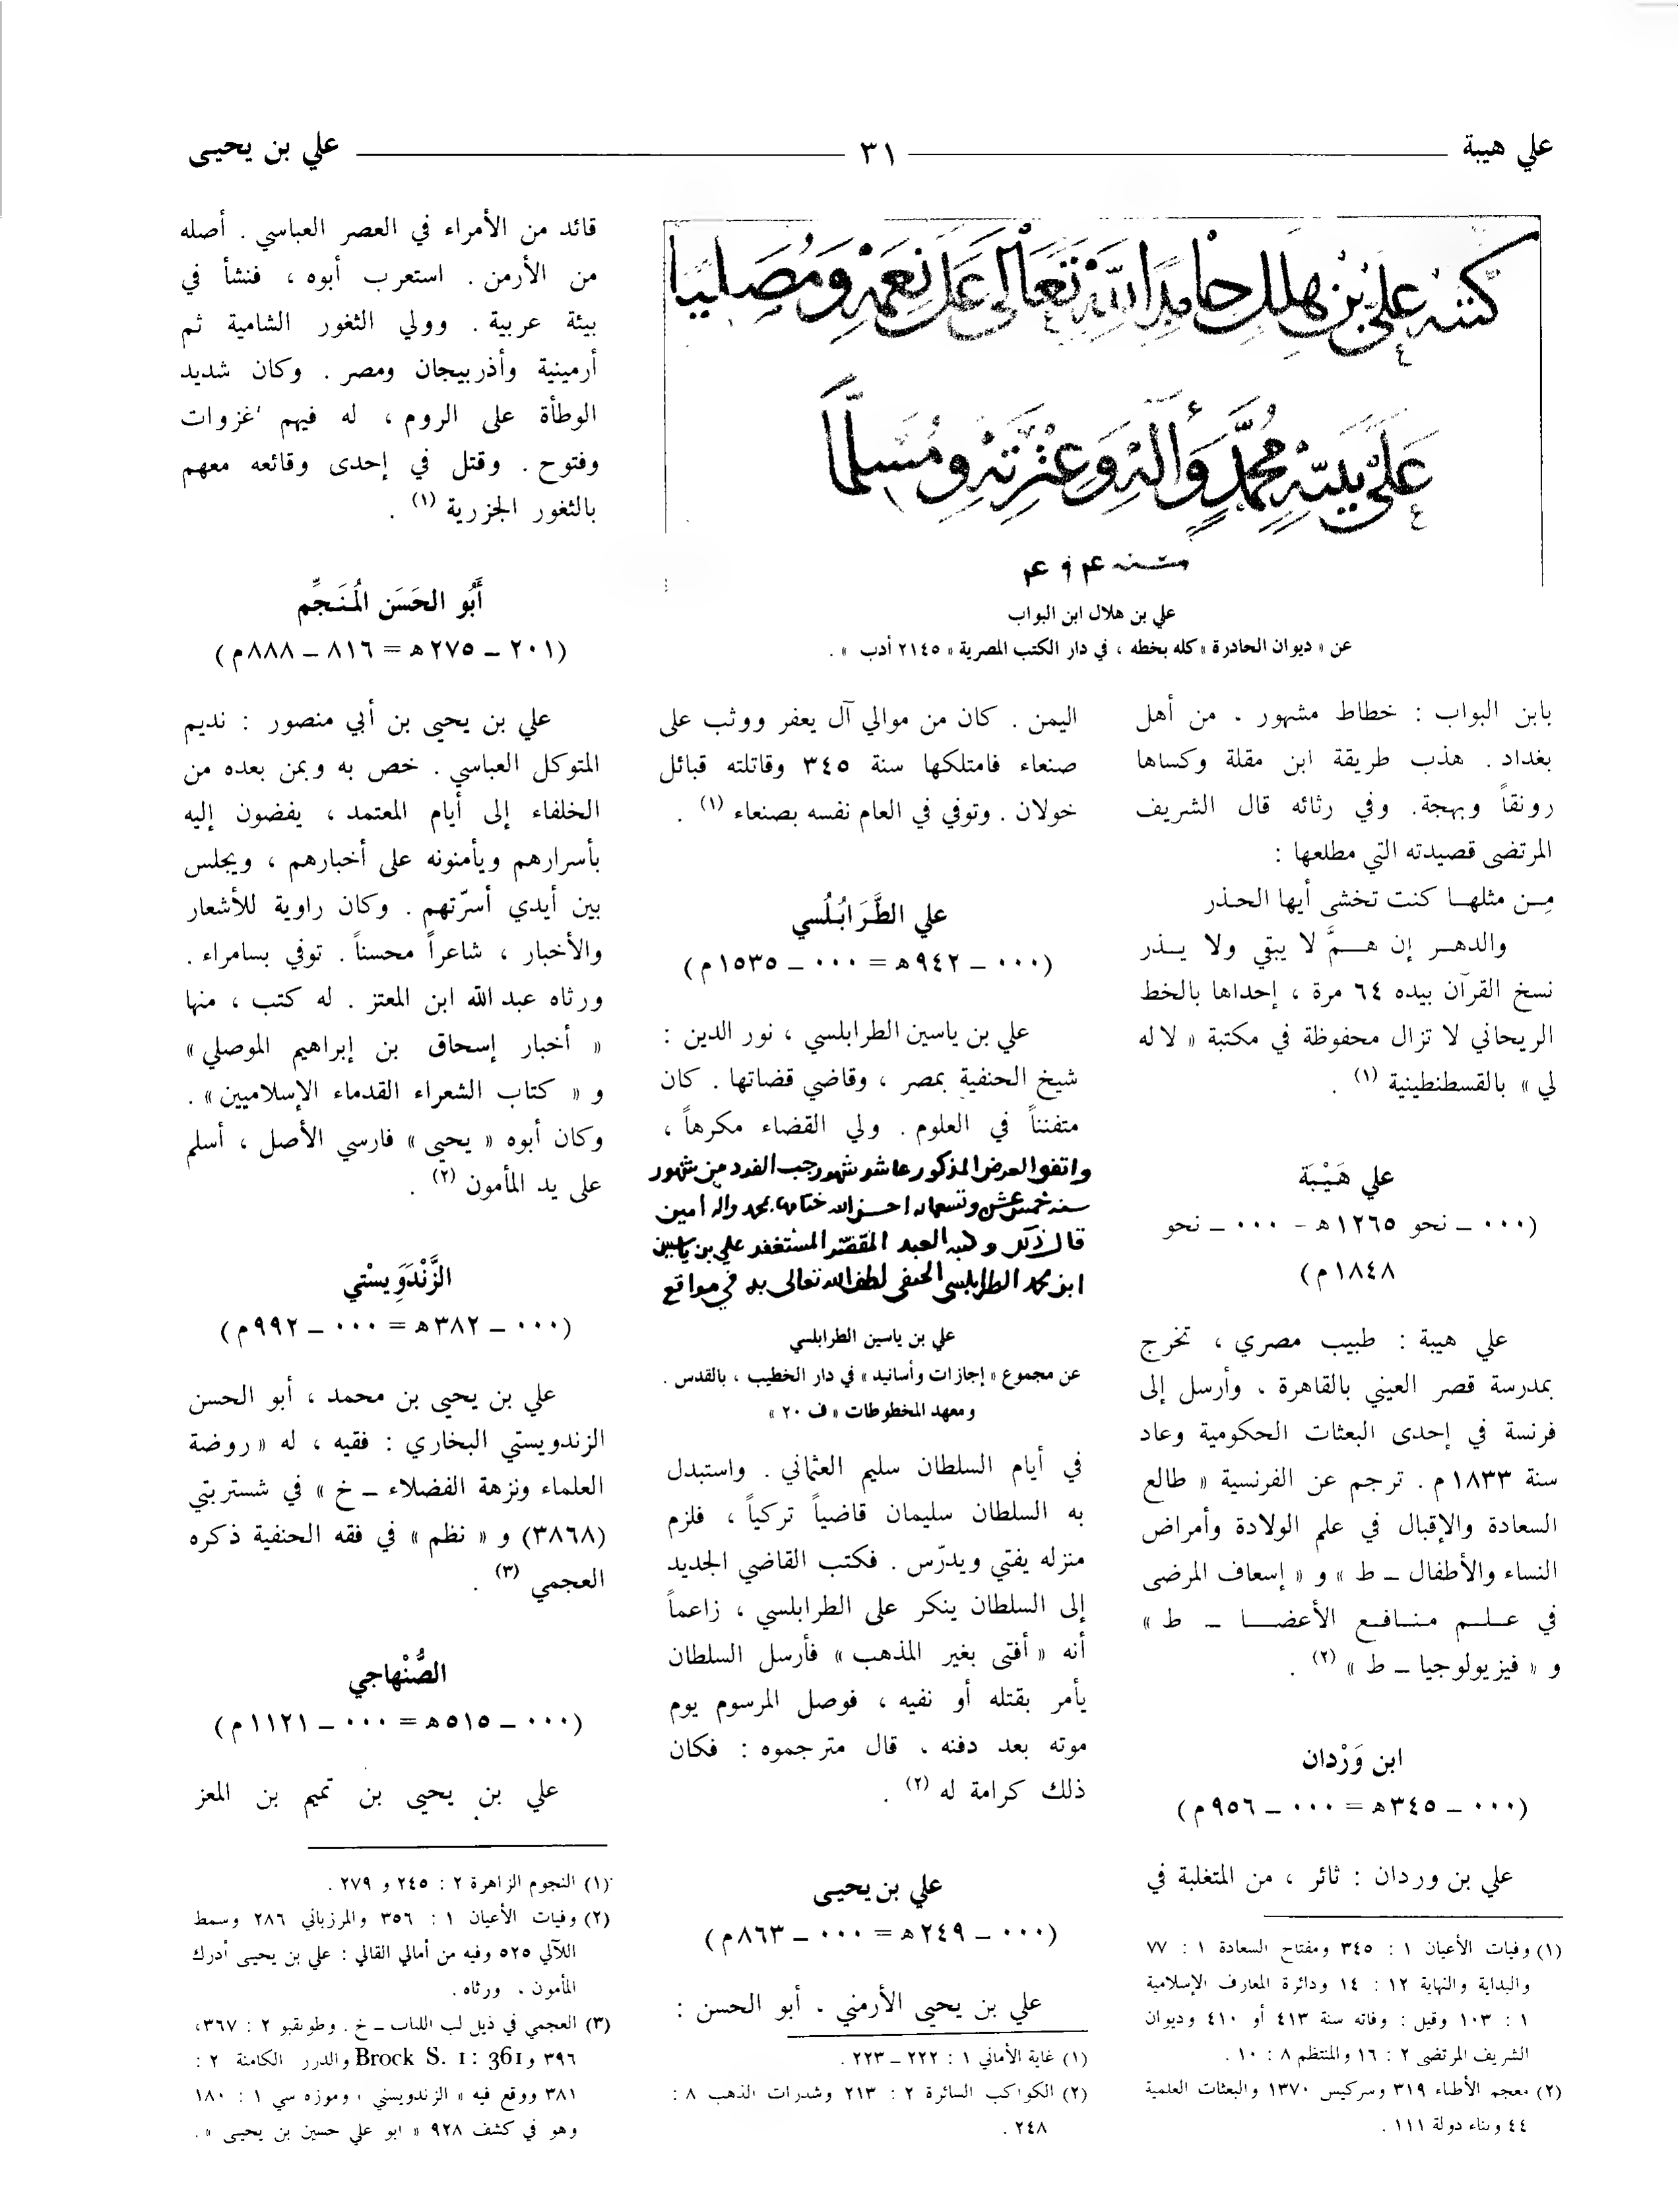 علي هيبة
٣١
علي بن يحيى
كتبه علي بن هلال حامدا لله تعالى على نعمه ومصليا
على نبيه محمد وآله وعترته ومسلما
علي بن هلال ابن البواب
عن « ديوان الحادرة » كله بخطه ، في دار الكتب المصرية « ٢١٤٥ أدب » .
بابن البواب : خطاط مشهور . من أهل
بغداد . هذب طريقة ابن مقلة وكساها
رونقاً وبهجة. وفي رثائه قال الشريف
المرتضى قصيدته التي مطلعها :
مِـن مثلهـا كنت تخشى أيها الحـذر
والدهـر إن هـمَّ لا يبقي ولا يـذر
نسخ القرآن بيده ٦٤ مرة ، إحداها بالخط
الريحاني لا تزال محفوظة في مكتبة « لا له
لي » بالقسطنطينية (١) .
علي هَيْبَة
(٠٠٠ ــ نحو ١٢٦٥هـ - ٠٠٠ ــ نحو
١٨٤٨م)
علي هيبة : طبيب مصري ، تخرج
بمدرسة قصر العيني بالقاهرة ، وأرسل إلى
فرنسة في إحدى البعثات الحكومية وعاد
سنة ١٨٣٣م . ترجم عن الفرنسية « طالع
السعادة والإقبال في علم الولادة وأمراض
النساء والأطفال ــ ط » و « إسعاف المرضى
في علـم منـافـع الأعضـا ــ ط »
و « فيزيولوجيا ــ ط » (٢) .
ابن وَرْدان
(٠٠٠ ــ ٣٤٥هـ = ٠٠٠ ــ ٩٥٦م)
علي بن وردان : ثائر ، من المتغلبة في
(١) وفيات الأعيان ١ : ٣٤٥ ومفتاح السعادة ١ : ٧٧
والبداية والنهاية ١٢ : ١٤ ودائرة المعارف الإسلامية
١ : ١٠٣ وقيل : وفاته سنة ٤١٣ أو ٤١٠ وديوان
الشريف المرتضى ٢ : ١٦ والمنتظم ٨ : ١٠ .
(٢) معجم الأطباء ٣١٩ وسركيس ١٣٧٠ والبعثات العلمية
٤٤ وبناء دولة ١١١ .
اليمن . كان من موالي آل يعفر ووثب على
صنعاء فامتلكها سنة ٣٤٥ وقاتلته قبائل
خولان . وتوفي في العام نفسه بصنعاء (١) .
علي الطَّرَابُلُسي
(٠٠٠ ــ ٩٤٢هـ = ٠٠٠ ــ ١٥٣٥م)
علي بن ياسين الطرابلسي ، نور الدين :
شيخ الحنفية بمصر ، وقاضي قضاتها . كان
متفنناً في العلوم . ولي القضاء مكرهاً ،
واتفق العرض المذكور عاشر شهر رجب الفرد من شهور
سنة خمس عشر وتسعمائة احسن الله ختامها بمحمد وآله امين
قال ذلك وكتبه العبد المفتقر المستغفر علي بن ياسين
ابن محمد الطرابلسي الحنفي لطف الله تعالى به في مواقع
علي بن ياسين الطرابلسي
عن مجموع « إجازات وأسانيد » في دار الخطيب ، بالقدس .
ومعهد المخطوطات « ف ٢٠ »
في أيام السلطان سليم العثماني . واستبدل
به السلطان سليمان قاضياً تركياً ، فلزم
منزله يفتي ويدرّس . فكتب القاضي الجديد
إلى السلطان ينكر على الطرابلسي ، زاعماً
أنه « أفتى بغير المذهب » فأرسل السلطان
يأمر بقتله أو نفيه ، فوصل المرسوم يوم
موته بعد دفنه ، قال مترجموه : فكان
ذلك كرامة له (٢) .
علي بن يحيى
(٠٠٠ ــ ٢٤٩هـ = ٠٠٠ ــ ٨٦٣م)
علي بن يحيى الأرمني ، أبو الحسن :
(١) غاية الأماني ١ : ٢٢٢ ــ ٢٢٣ .
(٢) الكواكب السائرة ٢ : ٢١٣ وشذرات الذهب ٨ :
٢٤٨ .
قائد من الأمراء في العصر العباسي . أصله
من الأرمن . استعرب أبوه ، فنشأ في
بيئة عربية . وولي الثغور الشامية ثم
أرمينية وأذربيجان ومصر . وكان شديد
الوطأة على الروم ، له فيهم غزوات
وفتوح . وقتل في إحدى وقائعه معهم
بالثغور الجزرية (١) .
أَبُو الحَسَن المُنَجِّم
(٢٠١ ــ ٢٧٥هـ = ٨١٦ ــ ٨٨٨م)
علي بن يحيى بن أبي منصور : نديم
المتوكل العباسي . خص به وبمن بعده من
الخلفاء إلى أيام المعتمد ، يفضون إليه
بأسرارهم ويأمنونه على أخبارهم ، ويجلس
بين أيدي أسرّتهم . وكان راوية للأشعار
والأخبار ، شاعراً محسناً . توفي بسامراء .
ورثاه عبد الله ابن المعتز . له كتب ، منها
« أخبار إسحاق بن إبراهيم الموصلي »
و « كتاب الشعراء القدماء الإسلاميين » .
وكان أبوه « يحيى » فارسي الأصل ، أسلم
على يد المأمون (٢) .
الزَّنْدَوِيسْتي
(٠٠٠ ــ ٣٨٢هـ = ٠٠٠ ــ ٩٩٢م)
علي بن يحيى بن محمد ، أبو الحسن
الزندويستي البخاري : فقيه ، له « روضة
العلماء ونزهة الفضلاء ــ خ » في شستربتي
(٣٨٦٨) و « نظم » في فقه الحنفية ذكره
العجمي (٣) .
الصُّنْهاجي
(٠٠٠ ــ ٥١٥هـ = ٠٠٠ ــ ١١٢١م)
علي بن يحيى بن تميم بن المعز
(١) النجوم الزاهرة ٢ : ٢٤٥ و ٢٧٩ .
(٢) وفيات الأعيان ١ : ٣٥٦ والمرزباني ٢٨٦ وسمط
اللآلي ٥٢٥ وفيه من أمالي القالي : علي بن يحيى أدرك
المأمون ، ورثاه .
(٣) العجمي في ذيل لب اللباب ــ خ . وطوبقبو ٢ : ٣٦٧،
٣٩٦ و Brock S. 1: 361 والدرر الكامنة ٢ :
٣٨١ ووقع فيه « الزندويسني » وموزه سي ١ : ١٨٠
وهو في كشف ٩٢٨ « ابو علي حسين بن يحيى » .